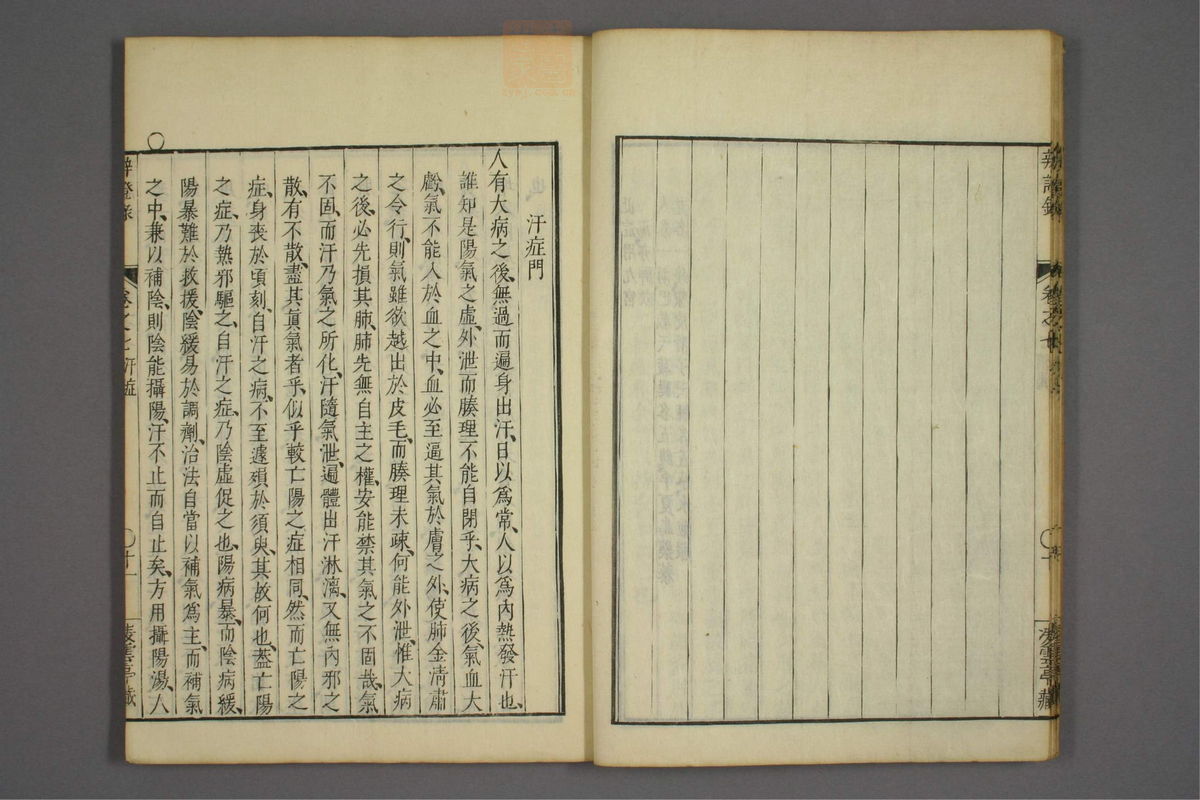 汗症門
人有大病之後、無過而遍身出汗、日以爲常、人以爲內熱發汗也、
誰知是陽氣之虛、外泄而腠理不能自閉乎、大病之後、氣血大
虧、氣不能入於血之中、血必至逼其氣於膚之外、使肺金淸肅
之令行、則氣雖欲越出於皮毛、而腠理未疎、何能外泄、惟大病
之後、必先損其肺、肺先無自主之權、安能禁其氣之不固哉、氣
不固、而汗乃氣之所化、汗隨氣泄、遍體出汗淋漓、又無內邪之
散、有不散盡其眞氣者乎、似乎較亡陽之症相同、然而亡陽之
症、身喪於頃刻、自汗之病、不至遽殞於須臾、其故何也、葢亡陽
之症、乃熱邪驅之、自汗之症、乃陰虛促之也、陽病暴、而陰病緩、
陽暴難於救援、陰緩易於調劑、治法自當以補氣爲主、而補氣
之中、兼以補陰、則陰能攝陽、汗不止而自止矣、方用攝陽湯、人
辨證錄
卷之七汗症
十一